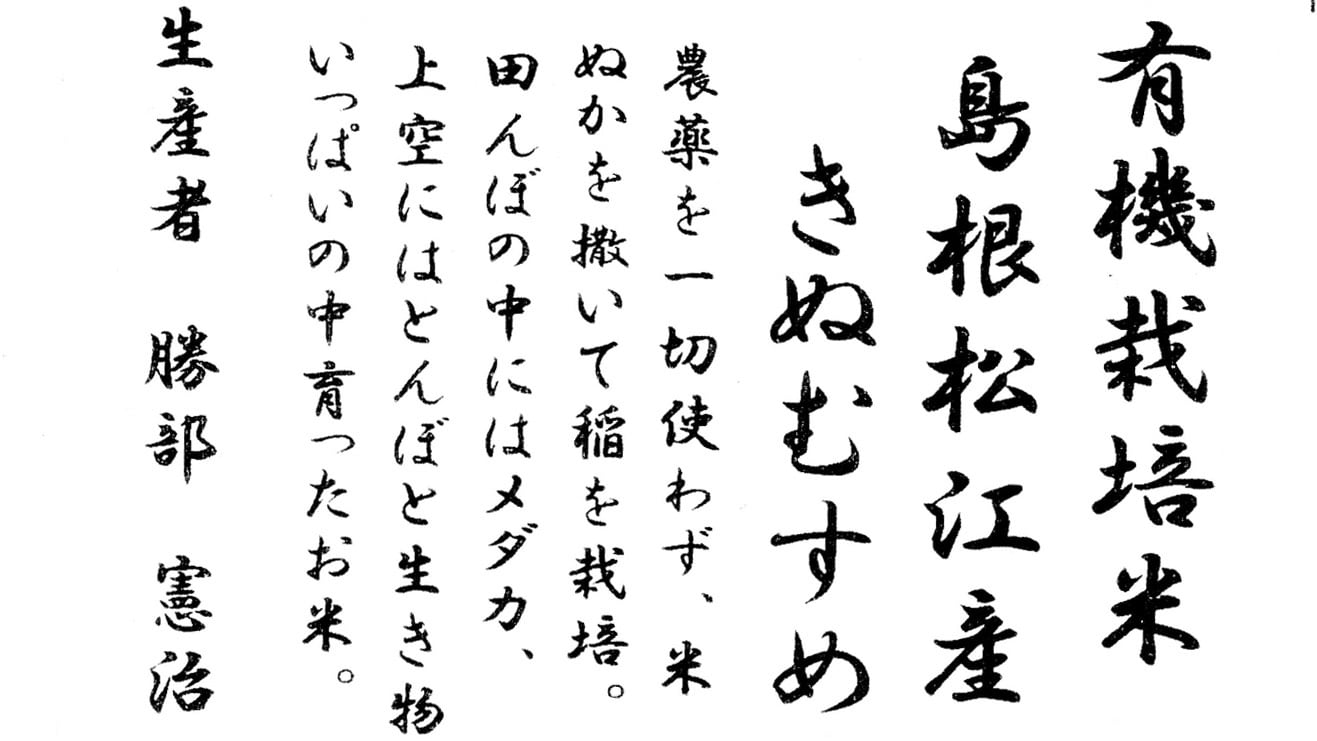 有機栽培米
島根松江産
きぬむすめ
農薬を一切使わず、米
ぬかを撒いて稲を栽培。
田んぼの中にはメダカ、
上空にはとんぼと生き物
いっぱいの中育ったお米。
生産者 勝部 憲治